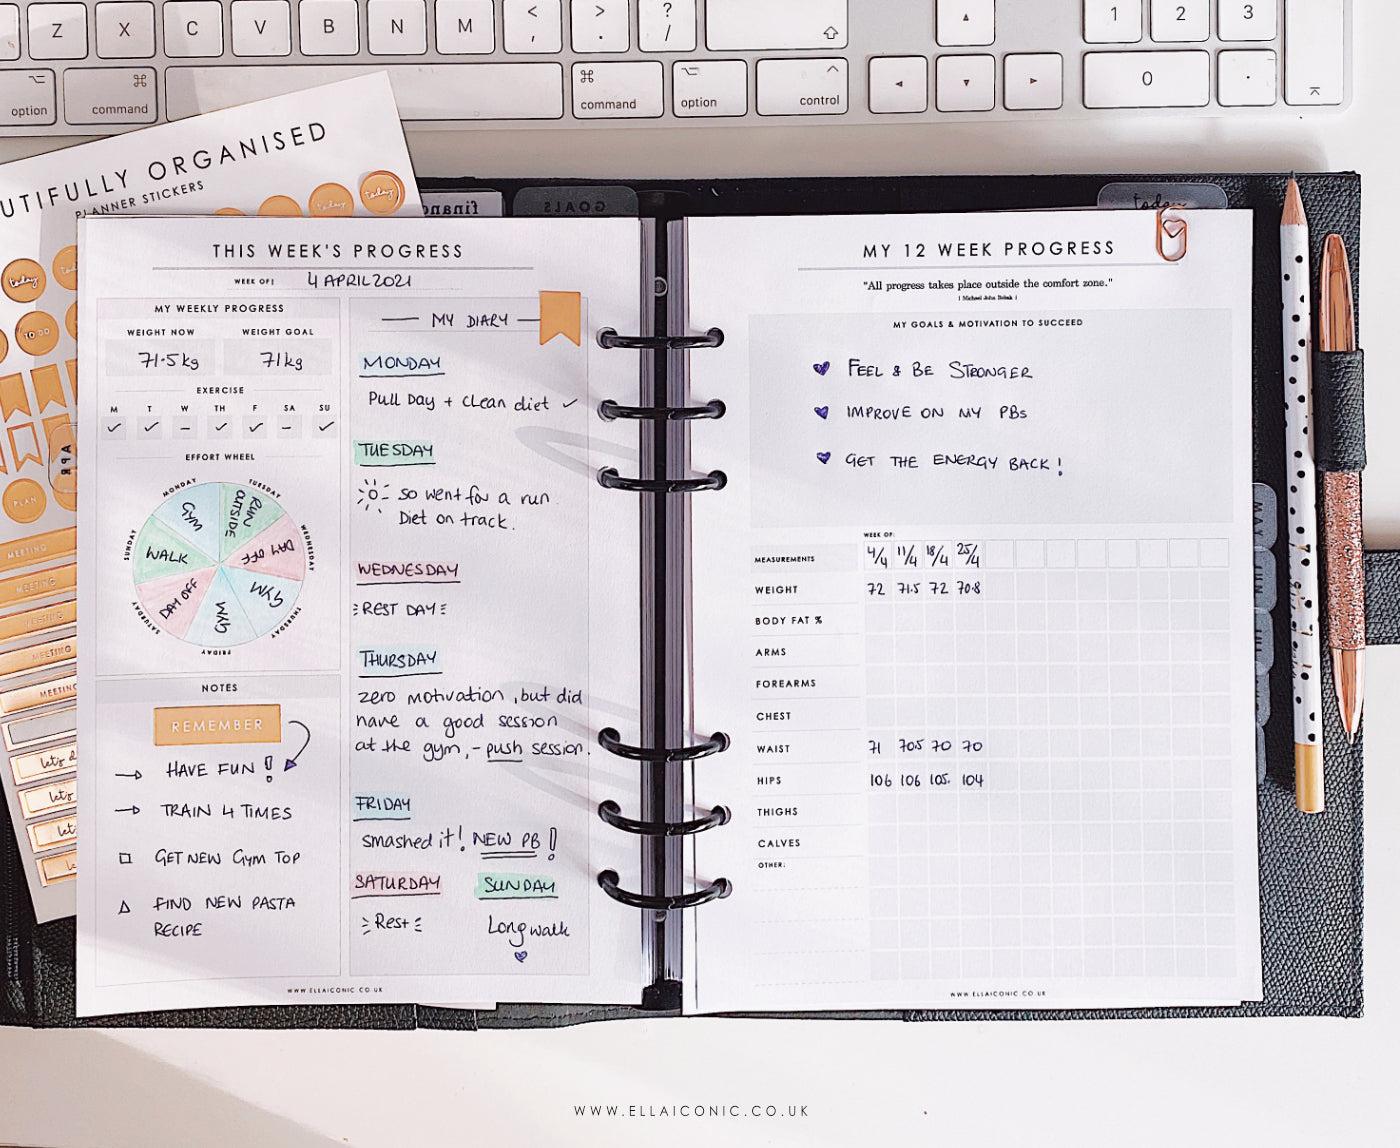 Z X C V B N M < , > . ? / 1 2 3
option command command option control 0 .
UTIFULLY ORGANISED
PLANNER STICKERS
today
today
today
today
TO DO
PLAN
APR
MEETING
MEETING
MEETING
MEETING
MEETING
let's d
let's
let
financ
GOALS
today
THIS WEEK'S PROGRESS
WEEK OF: 4 APRIL 2021
MY WEEKLY PROGRESS
WEIGHT NOW WEIGHT GOAL
71.5kg 71kg
EXERCISE
M T W TH F SA SU
✓ ✓ – ✓ ✓ – ✓
EFFORT WHEEL
MONDAY
GYM
TUESDAY
RUN OUTSIDE
WEDNESDAY
DAY OFF
THURSDAY
GYM
FRIDAY
GYM
SATURDAY
DAY OFF
SUNDAY
WALK
NOTES
REMEMBER
→ HAVE FUN!
→ TRAIN 4 TIMES
□ GET NEW GYM TOP
△ FIND NEW PASTA
RECIPE
MY DIARY
MONDAY
Pull Day + clean diet ✓
TUESDAY
so went for a run
Diet on track.
WEDNESDAY
REST DAY
THURSDAY
zero motivation, but did
have a good session
at the gym, - push session.
FRIDAY
smashed it! NEW PB!
SATURDAY SUNDAY
Rest Long walk
WWW.ELLAICONIC.CO.UK
MY 12 WEEK PROGRESS
"All progress takes place outside the comfort zone."
MY GOALS & MOTIVATION TO SUCCEED
FEEL & BE STRONGER
IMPROVE ON MY PBs
GET THE ENERGY BACK!
WEEK OF:
MEASUREMENTS 4/4 11/4 18/4 25/4
WEIGHT 72 71.5 72 70.8
BODY FAT %
ARMS
FOREARMS
CHEST
WAIST 71 70.5 70 70
HIPS 106 106 105. 104
THIGHS
CALVES
OTHER:
WWW.ELLAICONIC.CO.UK
MAY
JUN
WWW.ELLAICONIC.CO.UK